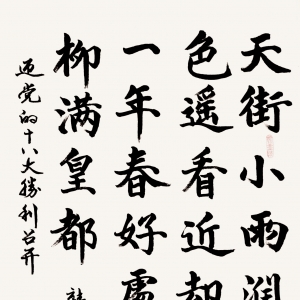 天街小雨潤
色遥看近却
一年春好處
柳满皇都
迎党的十八大勝利召开